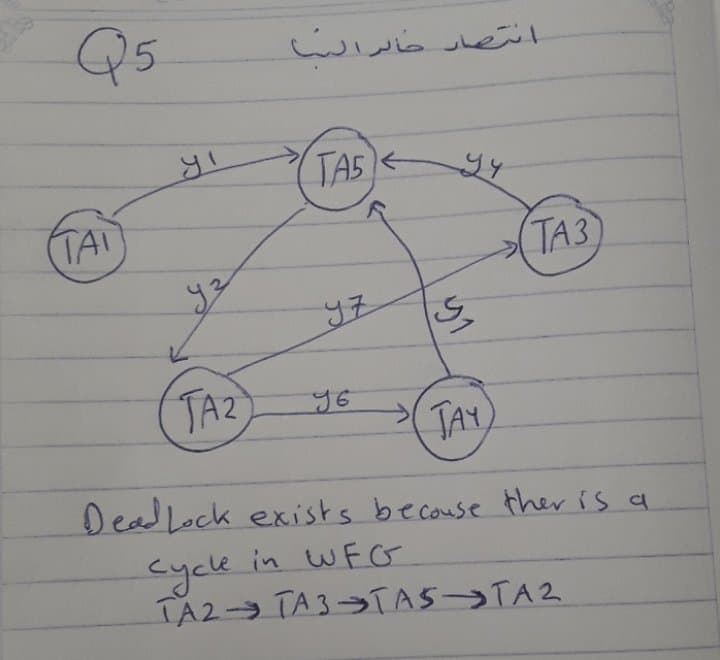 Q5
انتصار خالد البنا
y1
TA5
y4
TA1
TA3
y2
y7
y5
TA2
y6
TA4
Deadlock exists becouse ther is a
cycle in WFG
TA2 → TA3 → TA5 → TA2